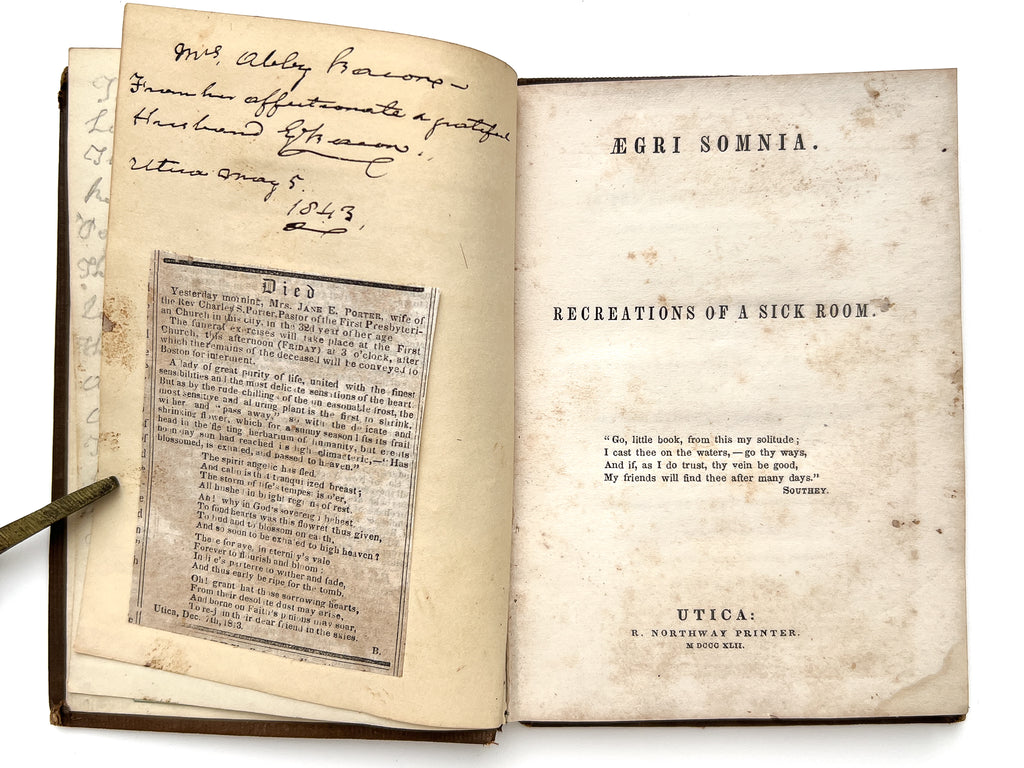 Mrs. Abby Bacon –
From her affectionate & grateful
Husband E Bacon.
Utica May 5.
1843.
Died
Yesterday morning, Mrs. JANE E. PORTER, wife of
the Rev Charles S. Porter, Pastor of the First Presbyteri-
an Church in this city, in the 32d year of her age
The funeral exercises will take place at the First
Church, this afternoon (FRIDAY) at 3 o'clock, after
which the remains of the deceased will be conveyed to
Boston for interment.
A lady of great purity of life, united with the finest
sensibilities and the most delicate sensations of the heart.
But as by the rude chilling of the unseasonable frost, the
most sensitive and alluring plant is the first to shrink,
wither and "pass away," so with the delicate and
shrinking flower, which for a sunny season lifts its frail
head in the fleeting herbarium of humanity, but ere its
noon day sun had reached its high climacteric,—"Has
blossomed, is exhaled, and passed to heaven."
The spirit angelic has fled,
And calm is that tranquilized breast;
The storm of life's tempest is o'er,
All hushed in bright regions of rest.
Ah! why in God's sovereign behest,
To fond hearts was this flowret thus given,
To bud and to blossom on earth,
And so soon to be exhaled to high heaven?
There for aye, in eternity's vale
Forever to flourish and bloom;
In life's parterre to wither and fade,
And thus early be ripe for the tomb.
Oh! grant that these sorrowing hearts,
From their desolate dust may arise,
And borne on Faith's pinions may soar,
To re-join their dear friend in the skies.
Utica, Dec. 7th, 1843.
B.
ÆGRI SOMNIA.
RECREATIONS OF A SICK ROOM.
"Go, little book, from this my solitude;
I cast thee on the waters,—go thy ways,
And if, as I do trust, thy vein be good,
My friends will find thee after many days."
SOUTHEY.
UTICA:
R. NORTHWAY PRINTER.
M DCCC XLII.